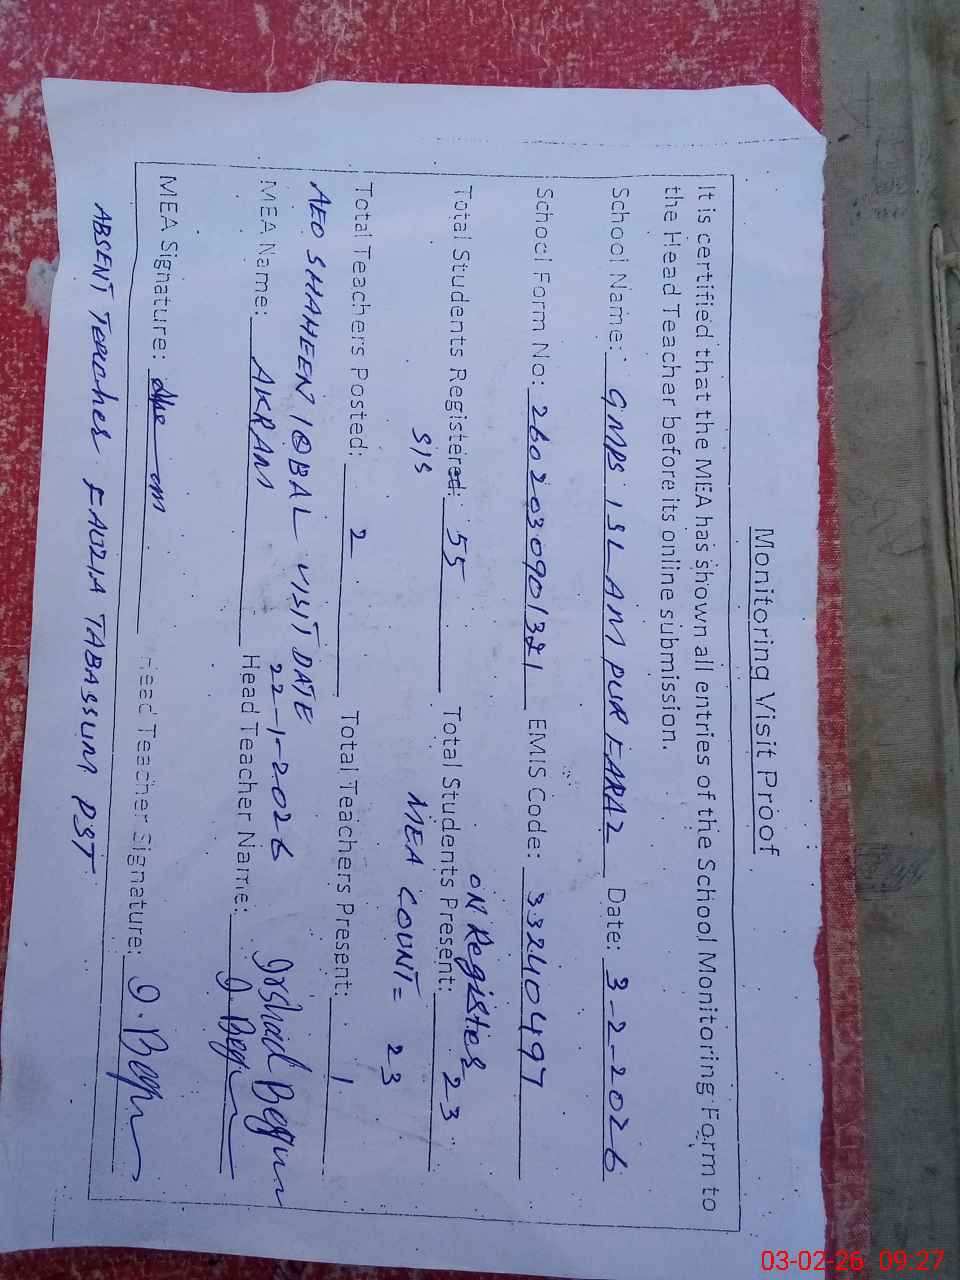 Monitoring Visit Proof
It is certified that the MEA has shown all entries of the School Monitoring Form to
the Head Teacher before its online submission.
School Name: GMPS ISLAMPUR FARAZ Date: 3-2-2026
School Form No: 2602030901321 EMIS Code: 33240497
ON Register
Total Students Registered: 55 Total Students Present: 23
SIS MEA COUNT = 23
Total Teachers Posted: 2 Total Teachers Present: 1
AEO SHAHEEN IQBAL VISIT DATE 22-1-2026
Irshad Begum
MEA Name: AKRAM Head Teacher Name: I. Begum
MEA Signature: Head Teacher Signature: I. Begum
ABSENT Teacher FAUZIA TABASSUM PST
03-02-26 09:27